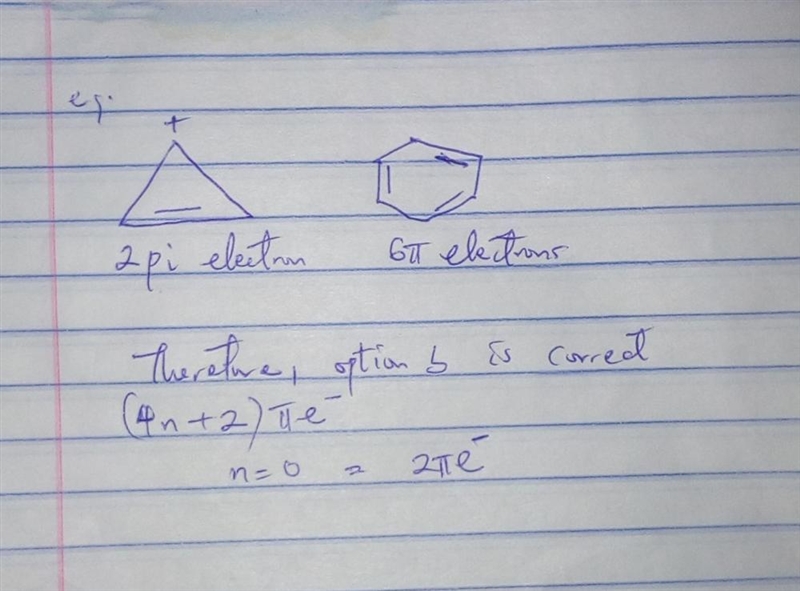 eg.
+
2 pi electron 6π electrons
Therefore, option b is correct
(4n+2) πe⁻
n=0 = 2πe⁻